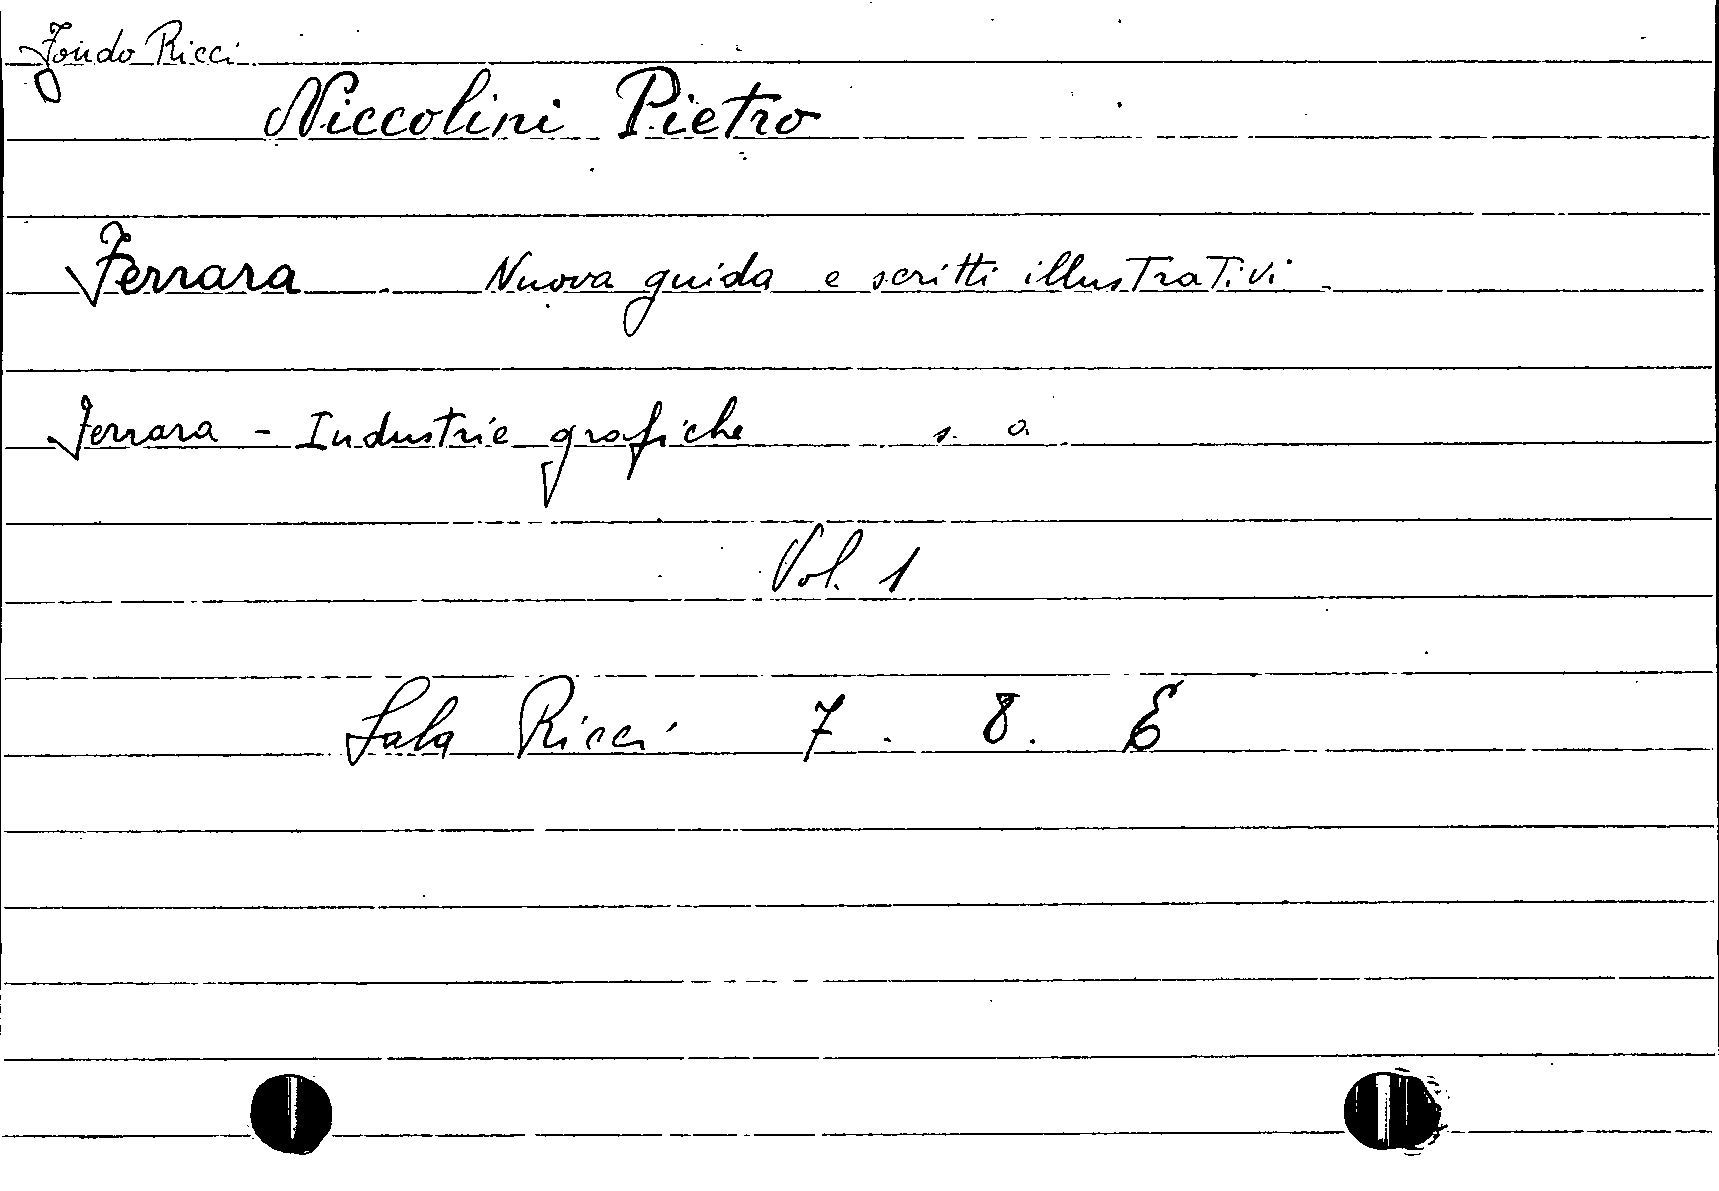 Fondo Ricci
Niccolini Pietro
Ferrara . Nuova guida e scritti illustrativi .
Ferrara - Industrie grafiche s. a.
Vol. 1
Sala Ricci 7 . 8 . E